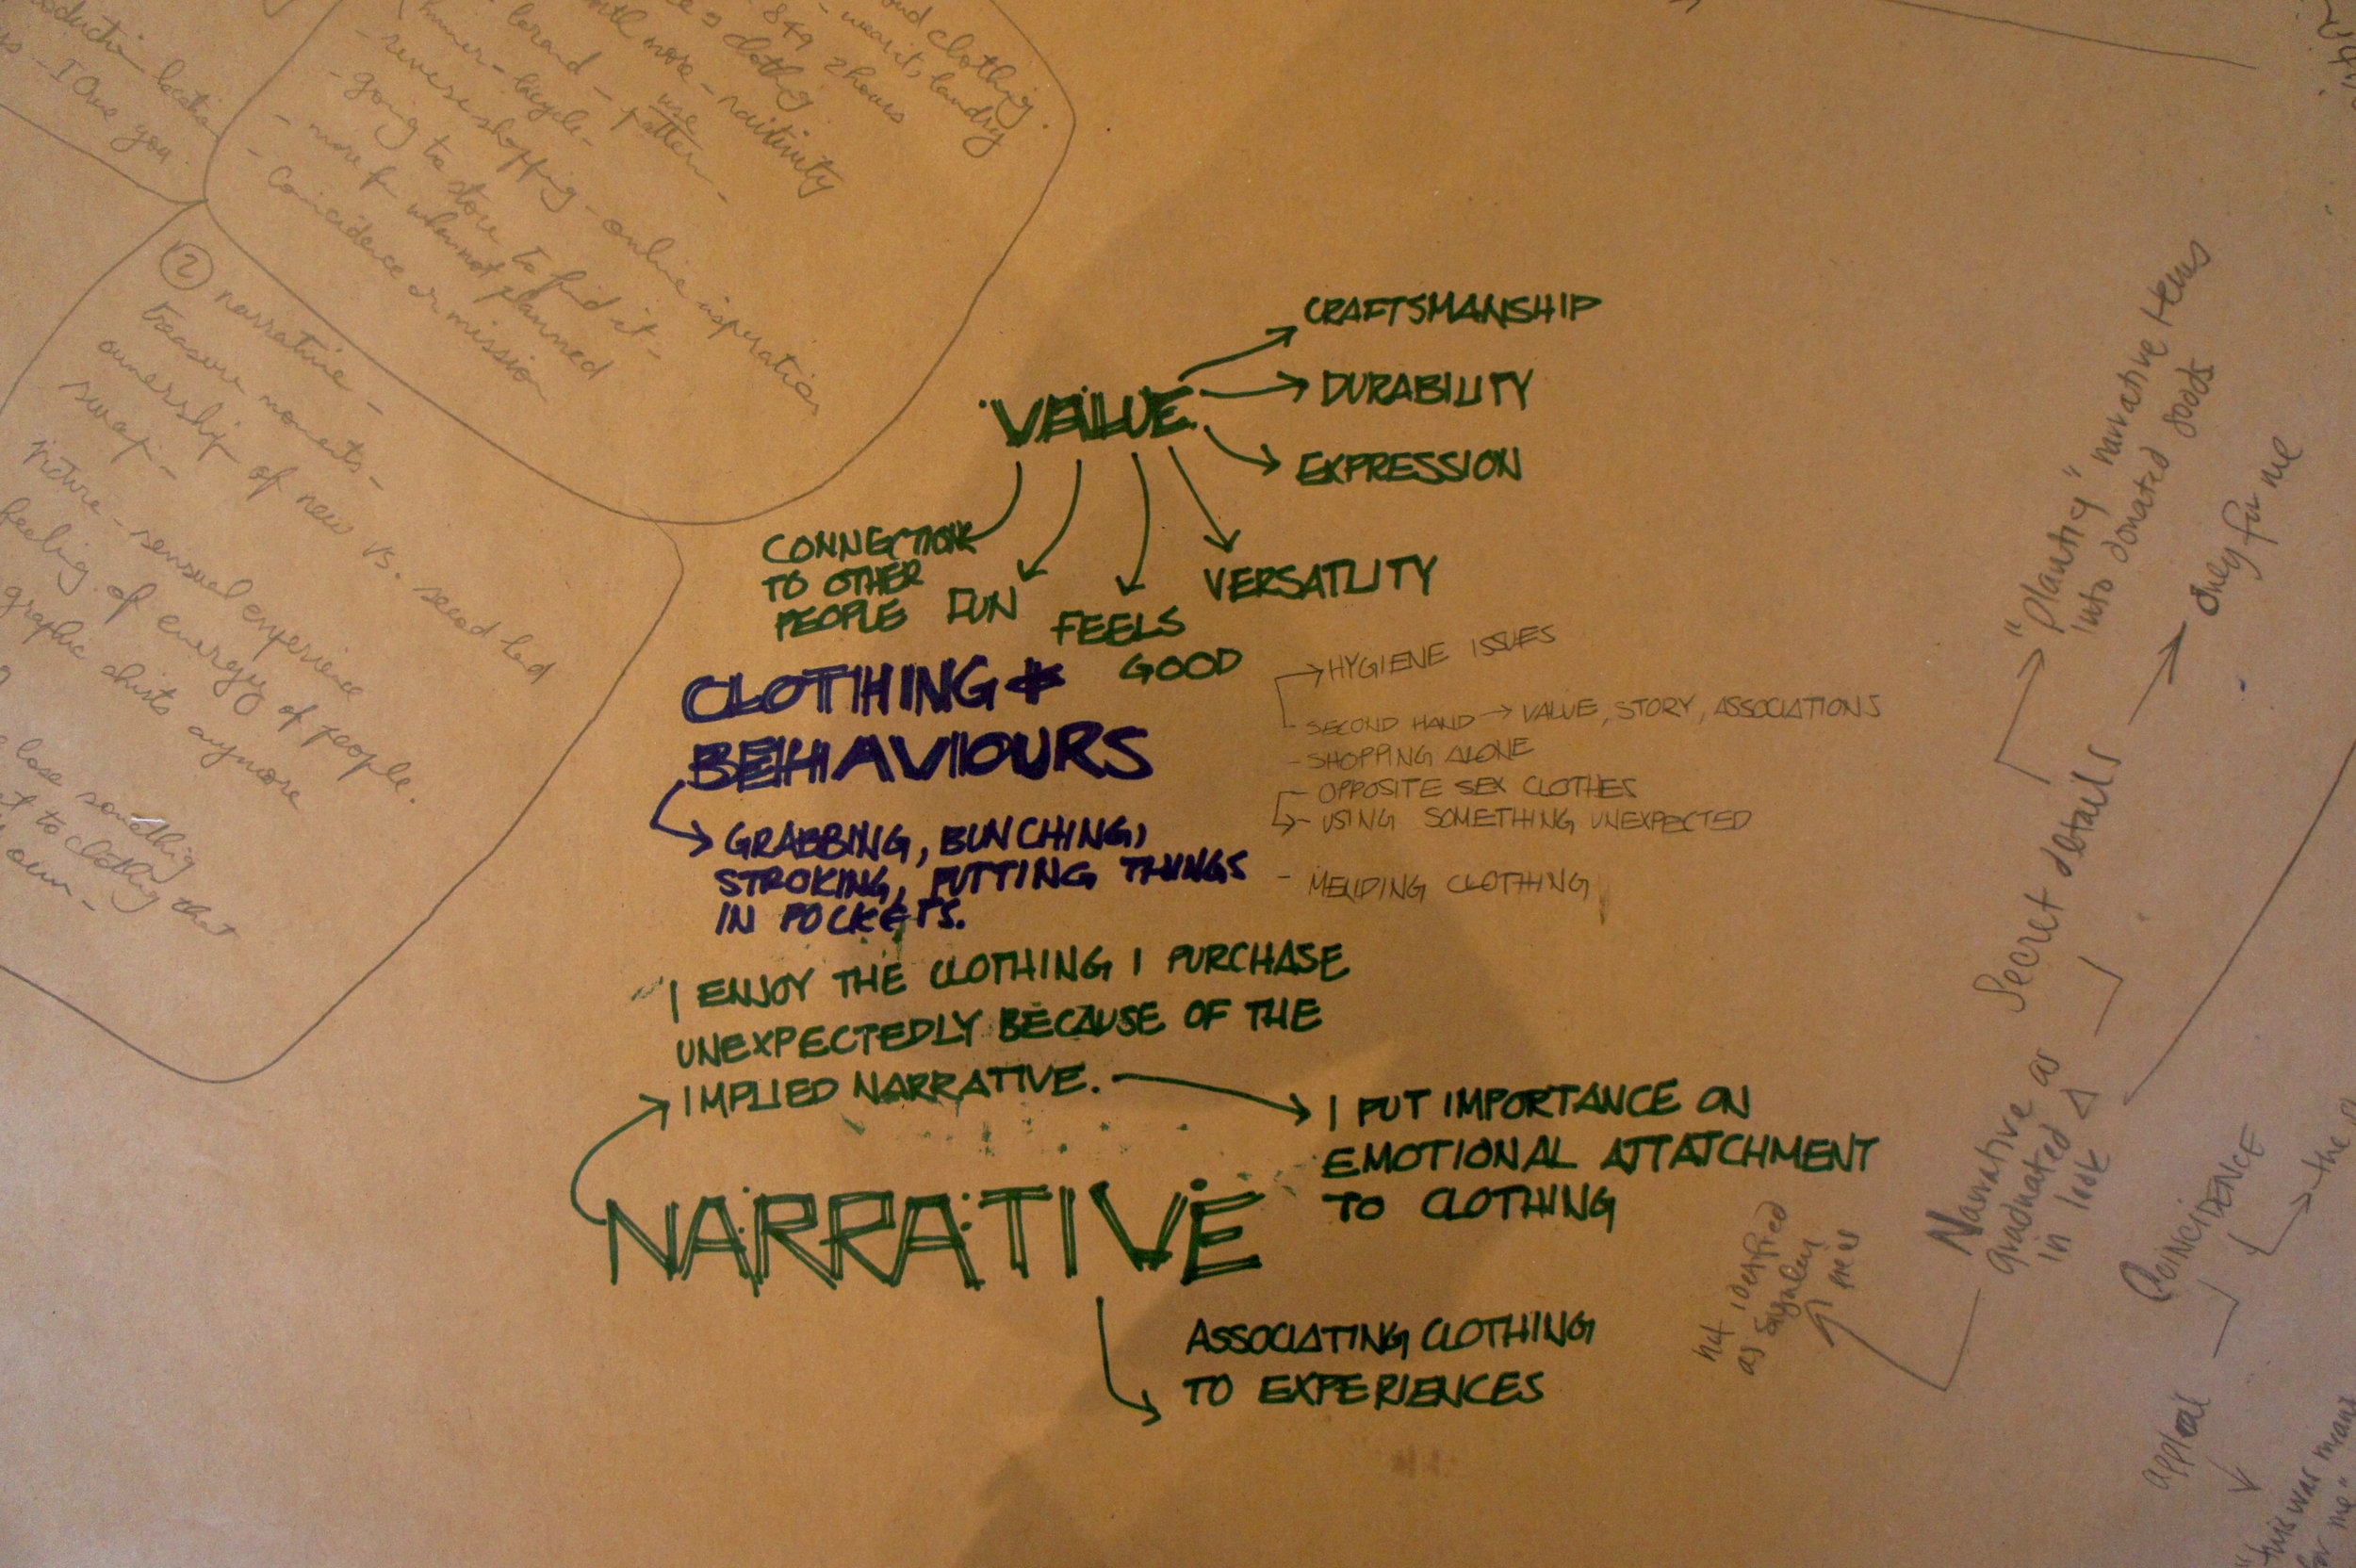 - I owe you
clothing
- wearit, landry
849 2 hours
clothing
more - raitivity
use
pattern -
- bicycle -
- reverse shopping - online inspiration
- going to store to find it -
- more fr when not planned
- coincidence or mission
② narrative -
treasure moments -
ownership of new vs. second hand
swap -
picture - sensual experience
feeling of energy of people.
graphic shirts anymore
lose somethig
to clothing that
own -
VALUE
CRAFTSMANSHIP
DURABILITY
EXPRESSION
VERSATLITY
FEELS
GOOD
FUN
CONNECTION
TO OTHER
PEOPLE
CLOTHING &
BEHAVIOURS
GRABBING, BUNCHING,
STROKING, PUTTING THINGS
IN POCKETS.
HYGIENE ISSUES
SECOND HAND → VALUE, STORY, ASSOCIATIONS
- SHOPPING ALONE
- OPPOSITE SEX CLOTHES
- USING SOMETHING UNEXPECTED
- MENDING CLOTHING
I ENJOY THE CLOTHING I PURCHASE
UNEXPECTEDLY BECAUSE OF THE
IMPLIED NARRATIVE.
I PUT IMPORTANCE ON
EMOTIONAL ATTATCHMENT
TO CLOTHING
NARRATIVE
ASSOCIATING CLOTHING
TO EXPERIENCES
"planting" narrative items
into donated goods
only for me
Secret details
Narrative as
graduated
in look
not identified
as singular
COINCIDENCE
the
appeal
"this was meant
for me"